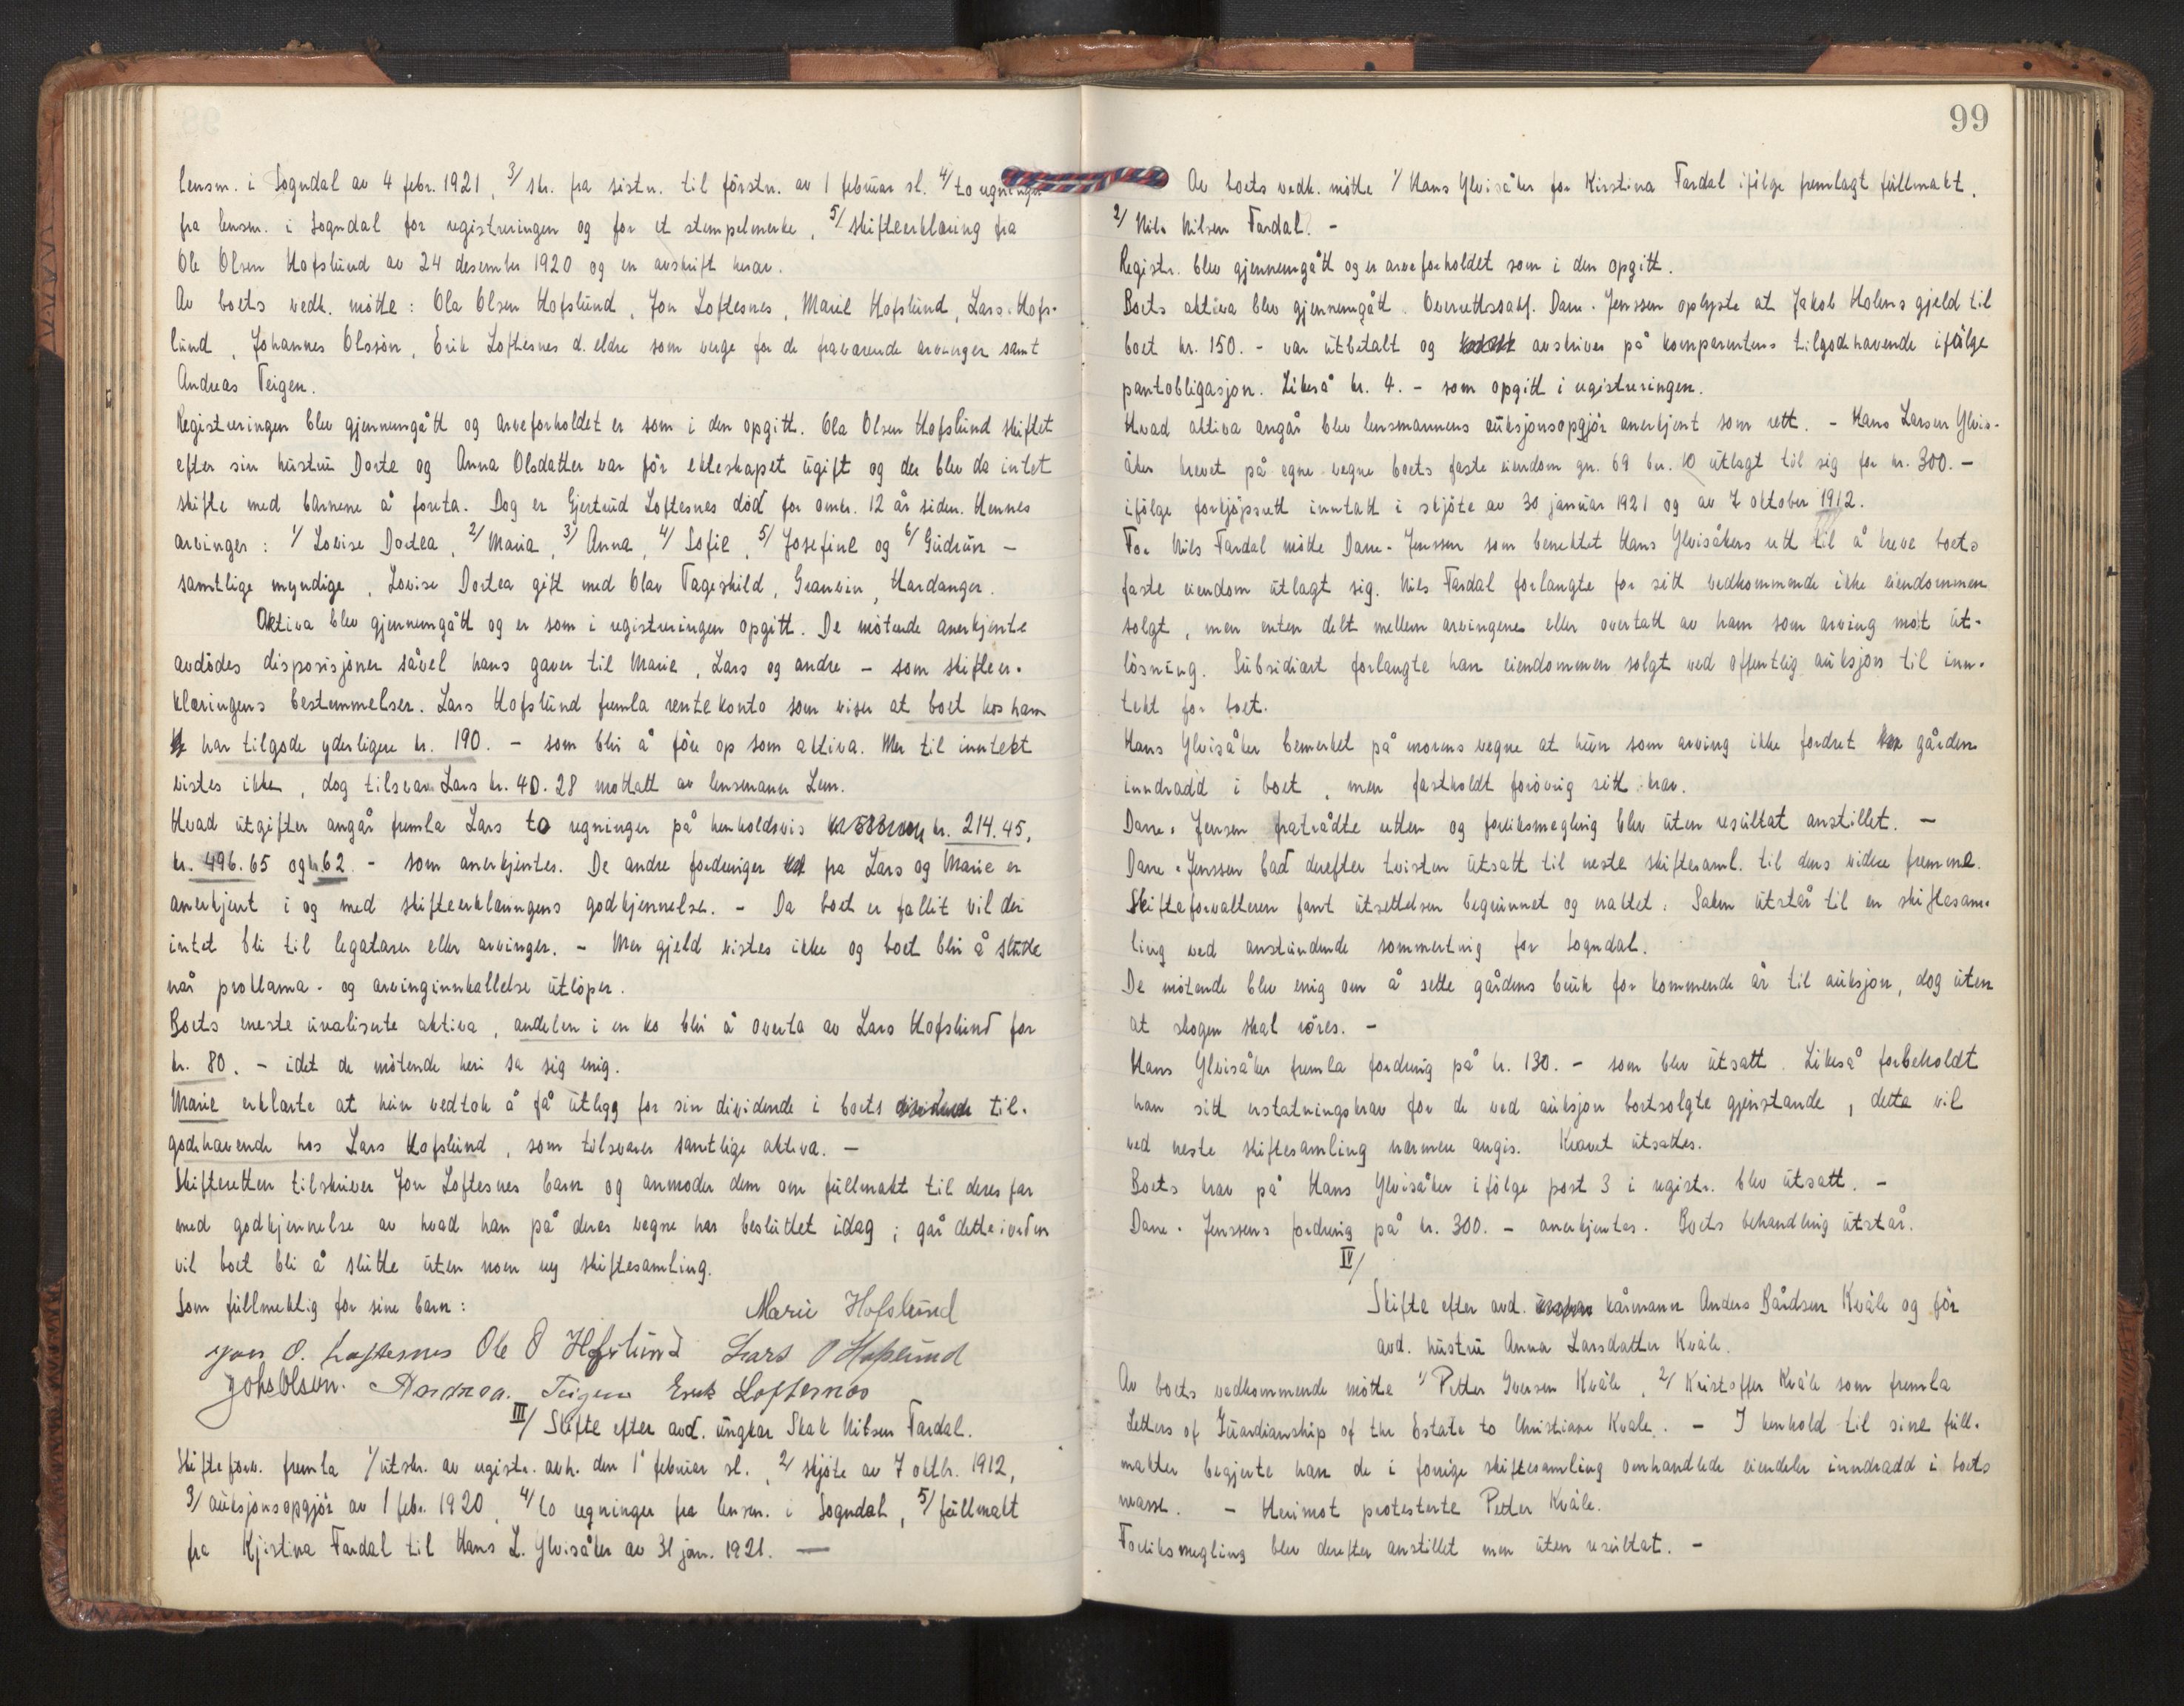 lensm. i Sogndal av 4 febr. 1921, 3/ skr. fra sistn. til förstn. av 1 februar sl. 4/ to regninger
fra lensm. i Sogndal for registreringen og for et stempelmerke, 5/ skifteerklæring fra
Ole Olsen Hofslund av 24 desember 1920 og en avskrift herav.
Av boets vedk. mötte: Ola Olsen Hofslund, Jon Loftesnes, Marie Hofslund, Lars Hofs-
lund, Johannes Olssön, Erik Loftesnes d. eldre som verge for de fraværende arvinger samt
Andreas Teigen.
Registreringen blev gjennemgått og arveforholdet er som i den opgitt. Ola Olsen Hofslund skiftet
efter sin hustru Dorte og Anna Olsdatter var för ekteskapet ugift og der blev da intet
skifte med barnene å foreta. Dog er Gjertrud Loftesnes död for omkr. 12 år siden. Hennes
arvinger: 1/ Lovise Dortea, 2/ Maria, 3/ Anna, 4/ Sofie, 5/ Josefine og 6/ Gudrun -
samtlige myndige, Lovise Dortea gift med Olav Tageskild, Granvin, Hardanger.
Aktiva blev gjennemgått og er som i registreringen opgitt. De mötende anerkjente
avdödes disposisjoner såvel hans gaver til Marie, Lars og andre - som skifteer-
klæringens bestemmelser. Lars Hofslund fremla rentekonto som viser at boet hos ham
har tilgode yderligere kr. 190. - som blir å före op som aktiva. Mer til inntekt
vistes ikke, dog tilsvar Lars kr. 40.28 mottatt av lensmann Lem.
Hvad utgifter angår fremla Lars to regninger på henholdsvis kr. 214.45,
kr. 496.65 og kr. 62. - som anerkjentes. De andre fordringer fra Lars og Marie er
anerkjent i og med skifteerklæringens godkjennelse. - Da boet er fallit vil der
intet bli til legatarer eller arvinger. - Mer gjeld vistes ikke og boet blir å slutte
når proklama- og arvinginnkallelse utlöper.
Boets eneste urealiserte aktiva, andelen i en ko blir å overta av Lars Hofslund for
kr. 80. - idet de mötende heri sa sig enig.
Marie erklærte at hun vedtok å få utlegg for sin dividende i boets dividende til-
godehavende hos Lars Hofslund, som tilsvarer samtlige aktiva. -
Skifteretten tilskriver Jon Loftesnes barn og anmoder dem om fullmakt til deres far
med godkjennelse av hvad han på deres vegne har besluttet idag; går dette i orden
vil boet bli å slutte uten noen ny skiftesamling.
Som fullmektig for sine barn: Marie Hofslund
Jon O. Loftesnes Ole O Hofslund Lars O Hofslund
Johs Olsen. Andreas Teigen Erik Loftesnes
III/ Skifte efter avd. ungkar Skak Nilsen Fardal.
Skifteforv. fremla 1/ utskr. av registr. avh. den 1 februar sl., 2/ skjöte av 7 oktbr. 1912,
3/ auksjonsopgjör av 1 febr. 1920, 4/ to regninger fra lensm. i Sogndal, 5/ fullmakt
fra Kjistina Fardal til Hans L. Ylvisåker av 31 jan. 1921. -
99
Av boets vedk. mötte 1/ Hans Ylvisåker for Kirstina Fardal ifölge fremlagt fullmakt.
2/ Nils Nilsen Fardal. -
Registr. blev gjennemgått og er arveforholdet som i den opgitt.
Boets aktiva blev gjennemgått. Overrettssakf. Dane-Jenssen oplyste at Jakob Holens gjeld til
boet kr. 150. - var utbetalt og avskrives på komparentens tilgodehavende ifölge
pantobligasjon. Likeså kr. 4. - som opgitt i registreringen.
Hvad aktiva angår blev lensmannens auksjonsopgjör anerkjent som rett. - Hans Larsen Ylvis-
åker krevet på egne vegne boets faste eiendom gn. 69 bn. 10 utlagt til sig for kr. 300. -
ifölge forkjöpsrett inntatt i skjöte av 30 januar 1921 og av 7 oktober 1912.
For Nils Fardal mötte Dane-Jenssen som benektet Hans Ylvisåkers rett til å kreve boets
faste eiendom utlagt sig. Nils Fardal forlangte for sitt vedkommende ikke eiendommen
solgt, men enten delt mellem arvingene eller overtatt av ham som arving mot ut-
lösning. Subsidiært forlangte han eiendommen solgt ved offentlig auksjon til inn-
tekt for boet.
Hans Ylvisåker bemerket på morens vegne at hun som arving ikke fordret gården
inndradd i boet, men fastholdt forövrig sitt krav.
Dane-Jensen fratrådte retten og forliksmegling blev uten resultat anstillet. -
Dane-Jenssen bad derefter tvisten utsatt til neste skiftesaml. til dens videre fremme.
Skifteforvalteren fant utsettelsen begrunnet og eraktet: Saken utstår til en skiftesam-
ling ved anstundende sommerting for Sogndal.
De mötende blev enig om å sette gårdens bruk for kommende år til auksjon, dog uten
at skogen skal röres. -
Hans Ylvisåker fremla fordring på kr. 130. - som blev utsatt. Likeså forbeholdt
han sitt erstatningskrav for de ved auksjon bortsolgte gjenstande, dette vil
ved neste skiftesamling nærmere angis. Kravet utsattes.
Boets krav på Hans Ylvisåker ifölge post 3 i registr. blev utsatt. -
Dane-Jenssens fordring på kr. 300. - anerkjentes. Boets behandling utstår.
IV/
Skifte efter avd. kårmann Anders Bårdsen Kvåle og för
avd. hustru Anna Larsdatter Kvåle.
Av boets vedkommende mötte 1/ Petter Iversen Kvåle, 2/ Kristoffer Kvåle som fremla
Letters of Guardianship of the Estate to Christiane Kvale. - I henhold til sine full-
makter begjerte han de i forrige skiftesamling omhandlede eiendeler inndradd i boets
masse. - Herimot protesterte Petter Kvåle.
Forliksmegling blev derefter anstillet men uten resultat. -